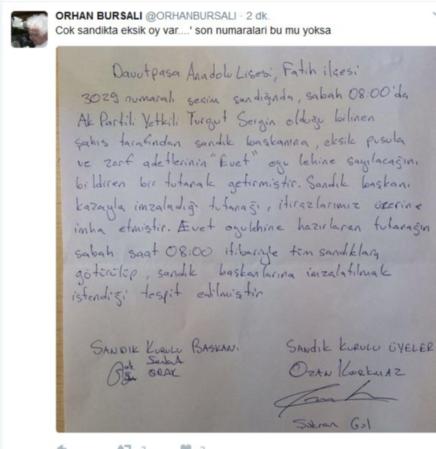 ORHAN BURSALI @ORHANBURSALI · 2 dk.
Cok sandikta eksik oy var....' son numaralari bu mu yoksa
Davutpaşa Anadolu Lisesi, Fatih ilçesi
3029 numaralı seçim sandığında, sabah 08:00'da
Ak Partili Yetkili Turgut Sergin olduğu bilinen
şahıs tarafından sandık başkanına, eksik pusula
ve zarf adetlerinin "Evet" oyu lehine sayılacağını
bildiren bir tutanak getirmiştir. Sandık başkanı
kazayla imzaladığı tutanağı, itirazlarımız üzerine
imha etmiştir. Evet oyu lehine hazırlanan tutanağın
sabah saat 08:00 itibariyle tüm sandıklara
götürülüp, sandık başkanlarına imzalatılmak
istendiği tespit edilmiştir
SANDIK KURULU BAŞKANI
SANDIK KURULU ÜYELER
OZAN KORKMAZ
Gül